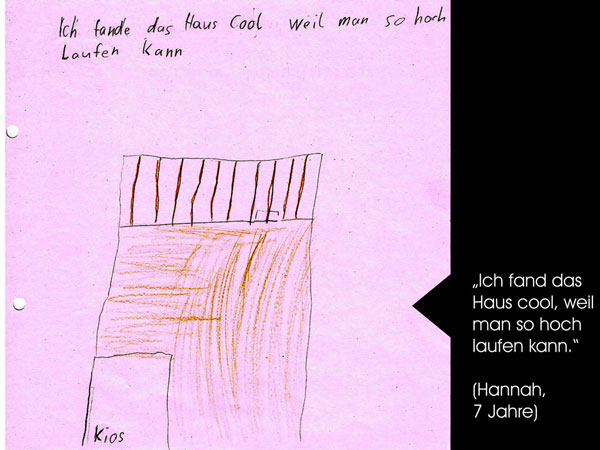 Ich fande das Haus Cool weil man so hoch
Laufen Kann
Kios
„Ich fand das
Haus cool, weil
man so hoch
laufen kann.“
(Hannah,
7 Jahre)